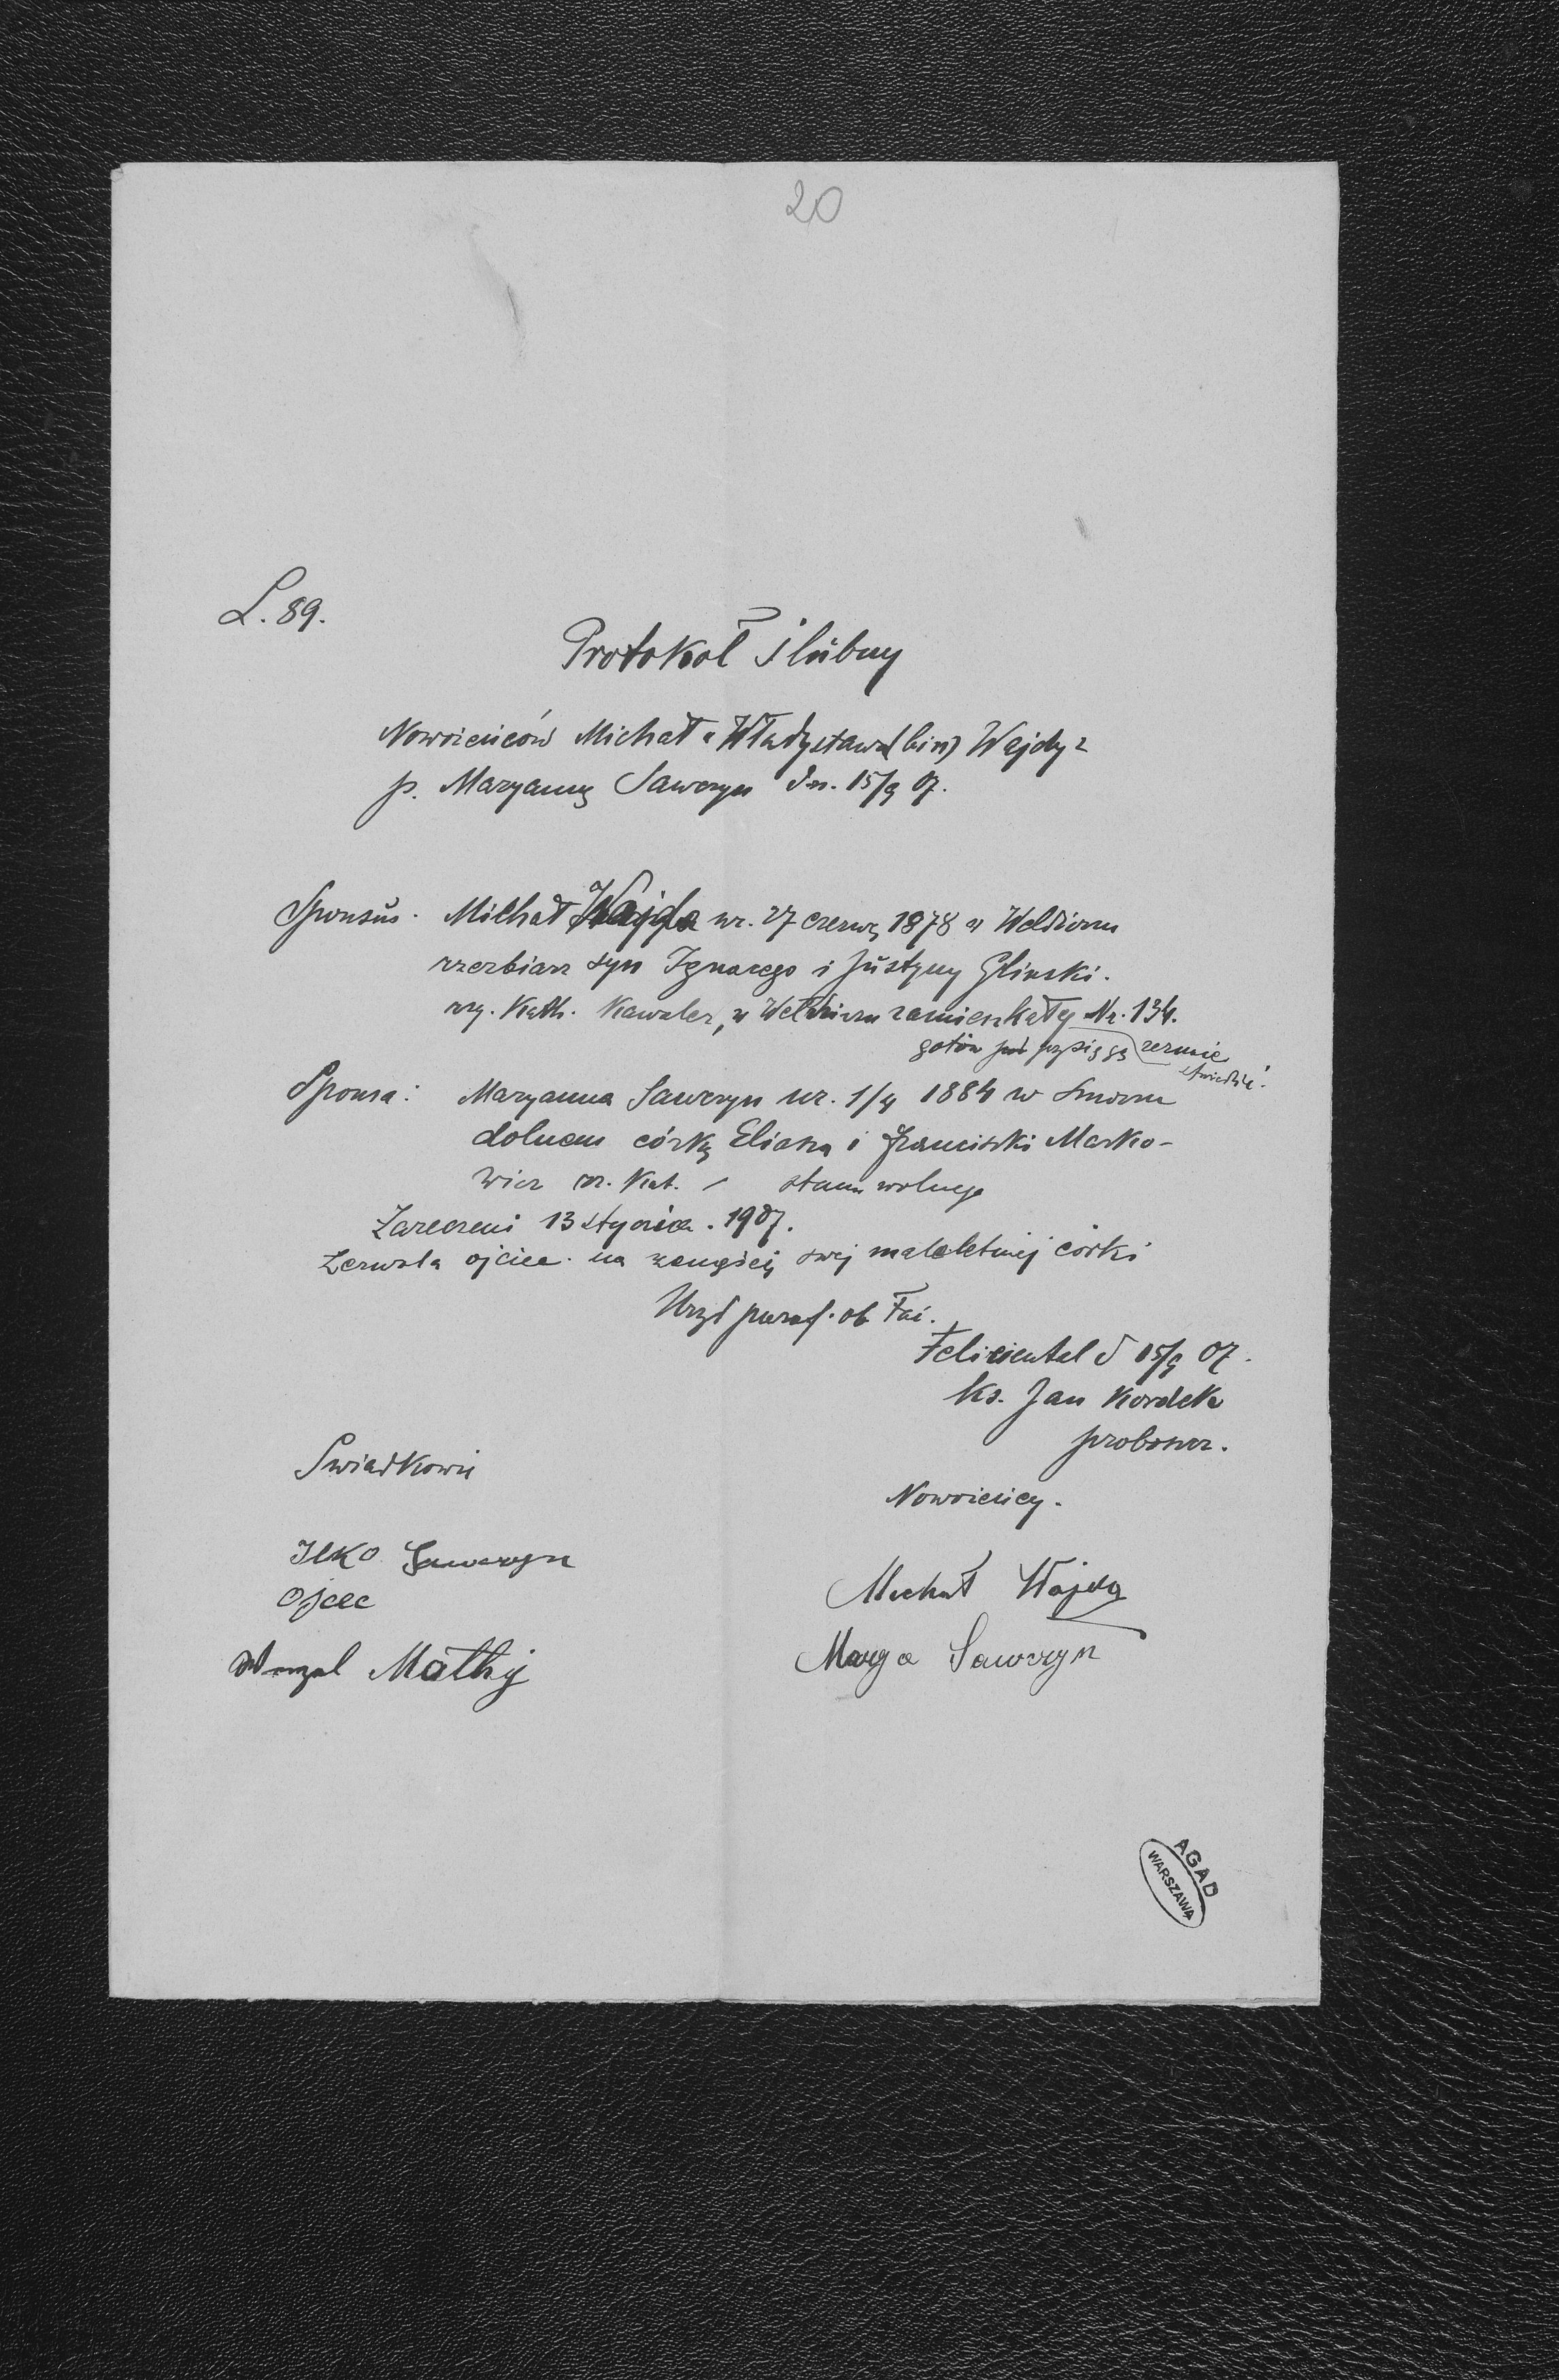 20
L. 89.
Protokół ślubny
Nowożeńców Michał a Władysława (bin) Wajdy z
p. Maryanną Sawczyn dn. 15/9 07.
Sponsus. Michał Wajda ur. 27 czerwc 1878 w Weldzirzu
rzezbiarz syn Ignacego i Justyny Glinski.
rzy. Kath. Kawaler, w Weldzirzu zamieszkały Nr. 134.
gotów pod przysięgą zeznic
stwierdzić.
Sponsa: Maryanna Sawczyn ur. 1/4 1884 w
dolnem córką Eliasza i Franciszki Marko-
wicz rz. Kat. / stanu wolnego
Zaręczeni 13 stycznia. 1907.
Zezwala ojciec na swej małoletniej córki
Urząd paraf. ob łac.
Felicienthal d 15/9 07.
ks. Jan Kordek
proboszcz.
Swiadkowie
Nowożeńcy.
Ilko Sawczyn
Ojcec
Michał Wajda
Marya Sawczyn
Mathy
AGAD
WARSZAWA